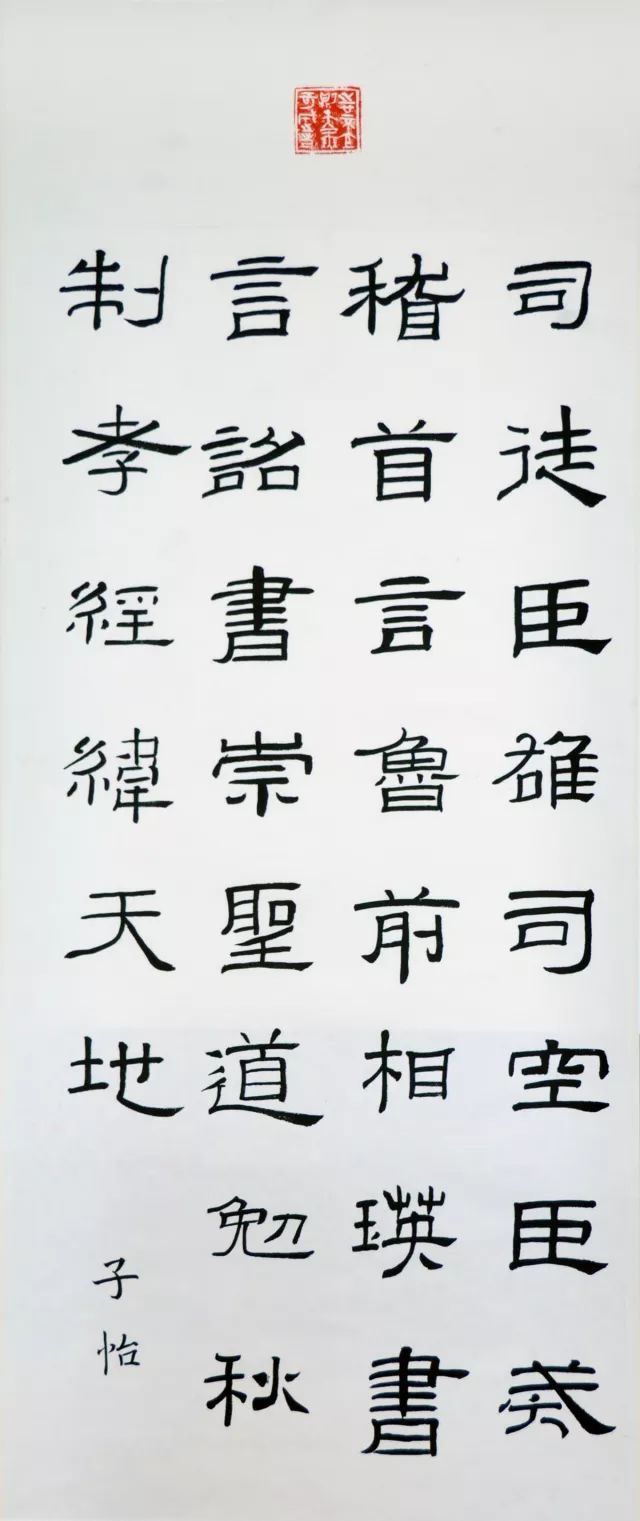 司徒臣雄司空臣戒
稽首言魯前相瑛書
言詔書崇聖道勉秋
制孝經緯天地
子怡